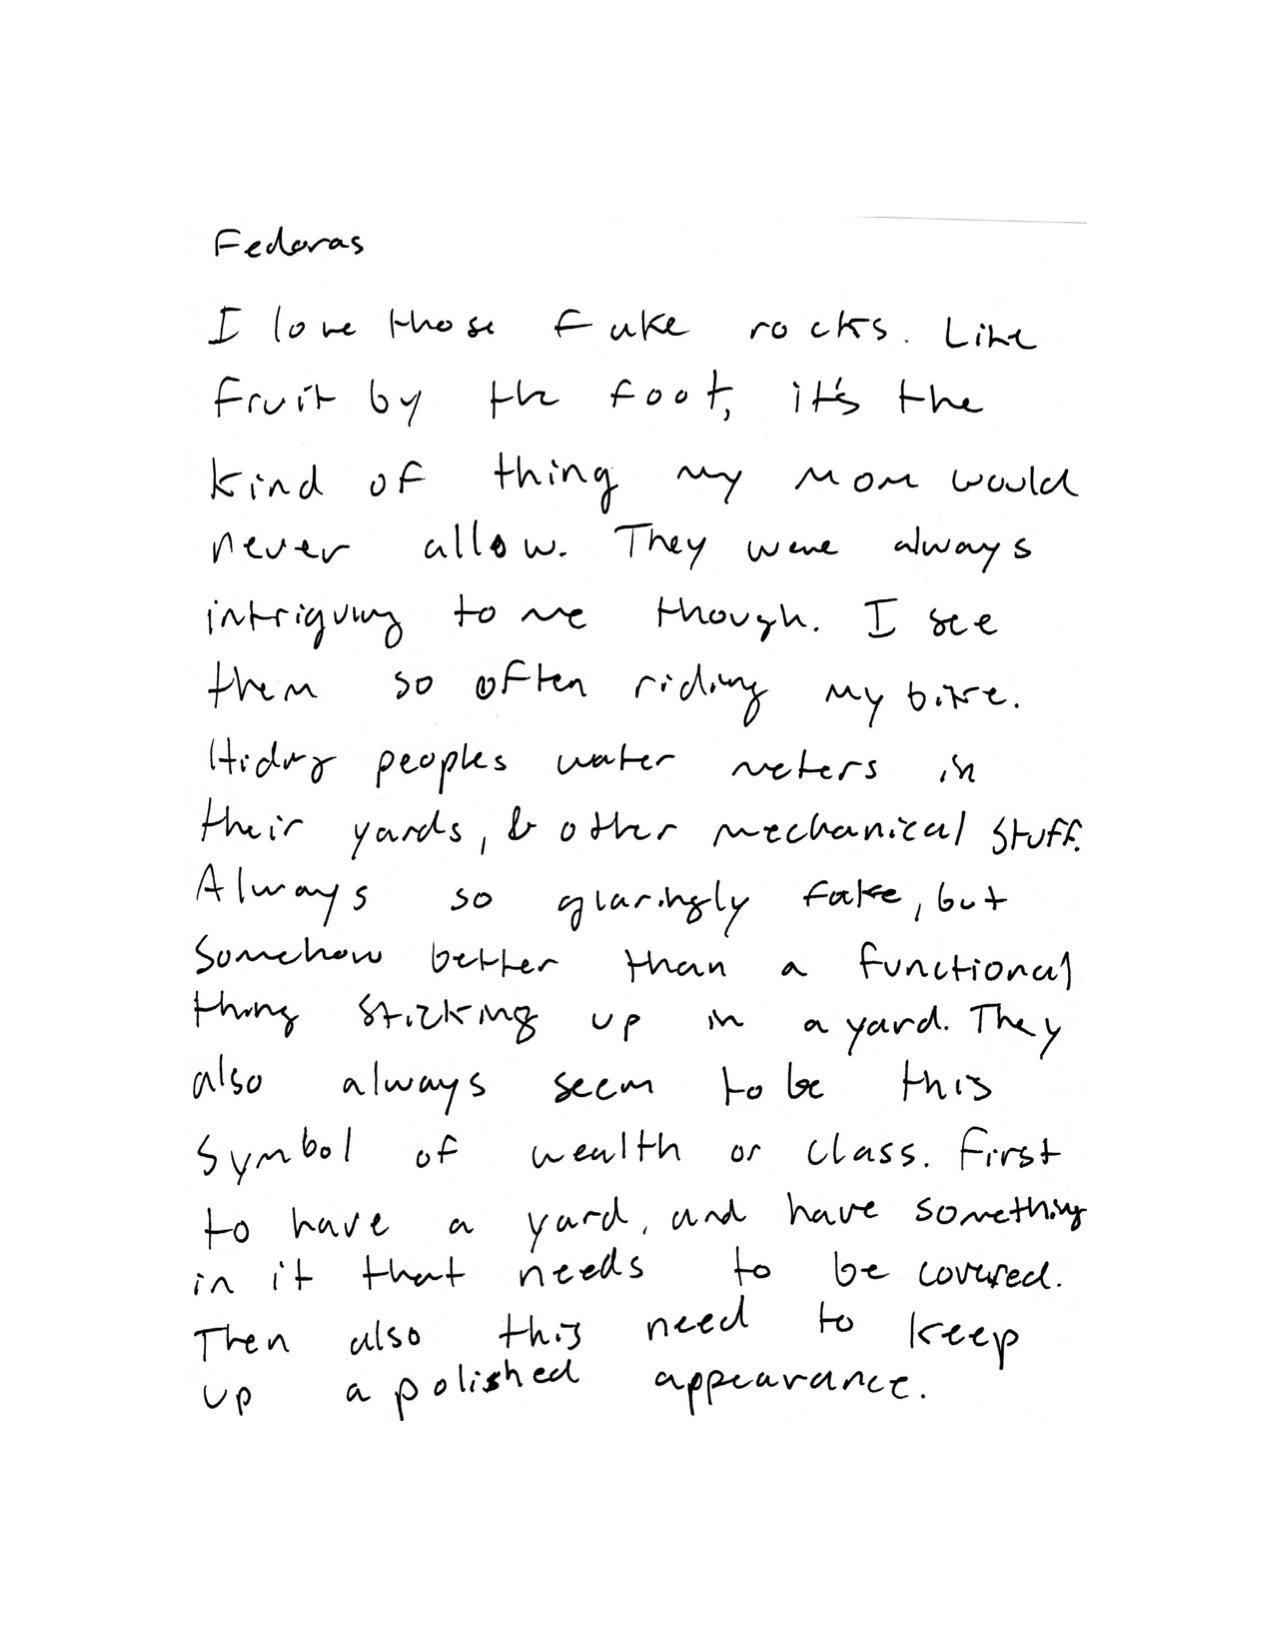 Fedoras
I love those fake rocks. Like
fruit by the foot, it's the
kind of thing my mom would
never allow. They were always
intriguing to me though. I see
them so often riding my bike.
Hiding peoples water meters in
their yards, & other mechanical stuff.
Always so glaringly fake, but
somehow better than a functional
thing sticking up in a yard. They
also always seem to be this
symbol of wealth or class. First
to have a yard, and have something
in it that needs to be covered.
Then also this need to keep
up a polished appearance.